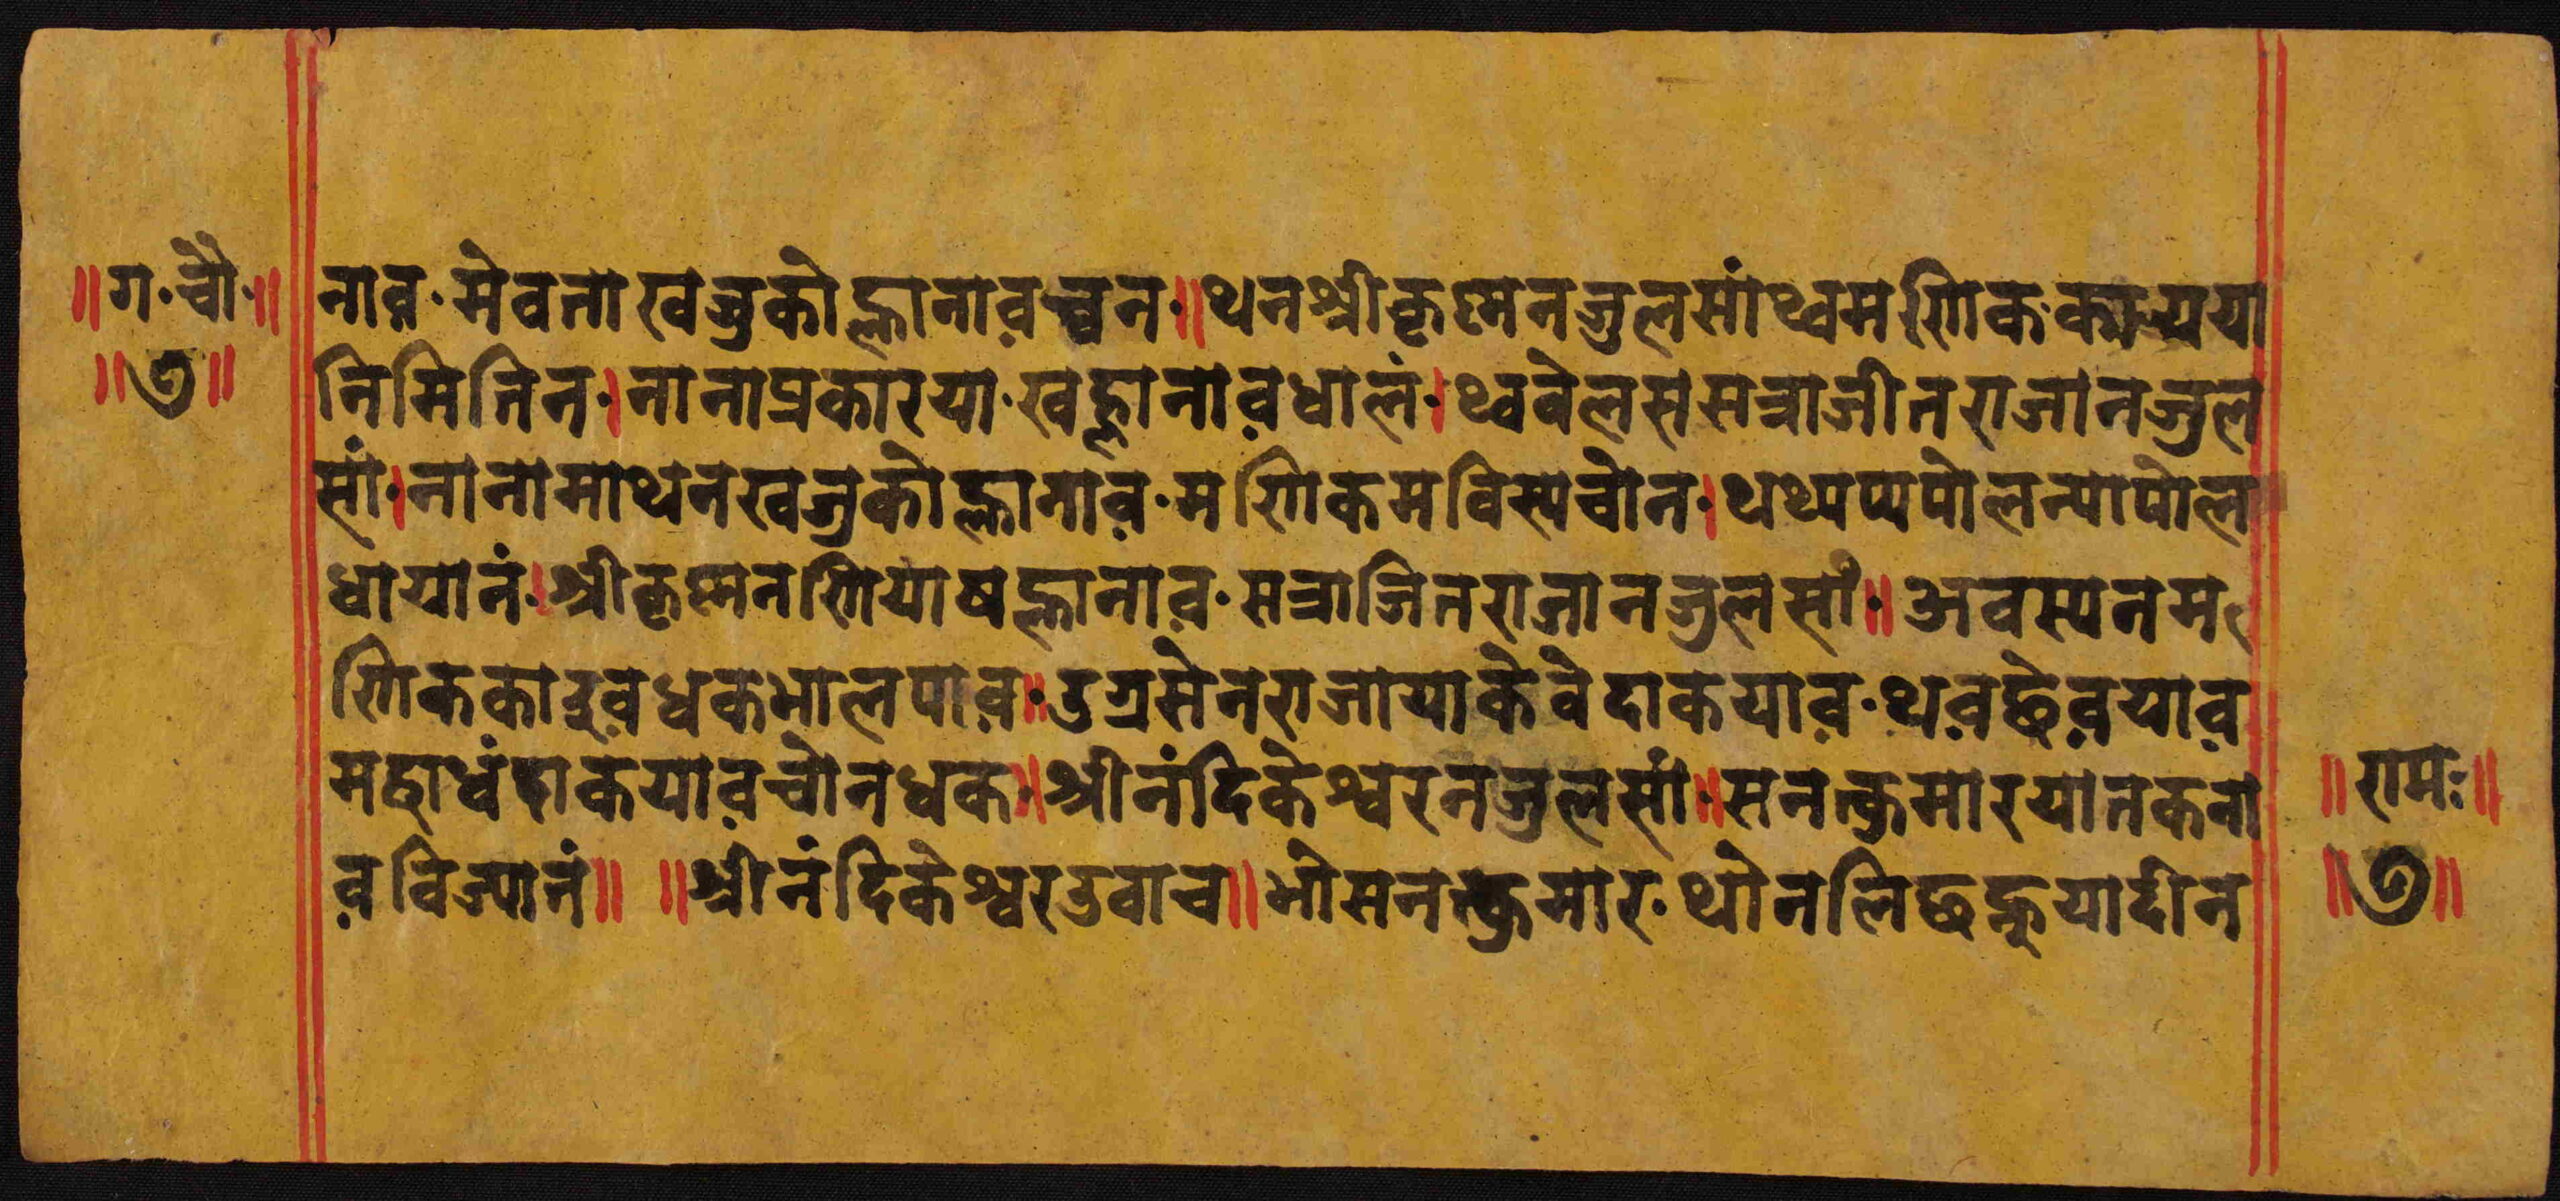 ॥ग·चौ·॥
॥७॥
नाव़·मेवता खजुको ह्लानाव़च्वन·॥थनश्रीकृष्मनजुलसांथ्वमणिक·कार्य्यया
निमितिन·।नानाप्रकारया·खह्लानाव़धालं·।थ्ववेलससत्राजीतराजानजुल
सां·।नानामाथनखजुकोह्लानाव़·मणिकमविस्यचोन·।थथ्यप्यपोलन्यापोल
धायानं·।श्रीकृष्मनणियाषह्लानाव़·सत्राजितराजानजुलसां·॥अवस्यनम
णिककाइव़धकभालपाव़·॥उग्रसेनराजायाकेवेदाकयाव़·थव़छेव़याव़
महाधंदाकयाव़चोनधक·॥श्रीनंदिकेश्वरनजुलसां·॥सनत्कुमारयातकना
व़विज्यानं॥ ॥श्रीनंदिकेश्वरउवाच॥भोसनत्कुमार·थोनलिछह्नुयादीन
॥रामः॥
॥७॥